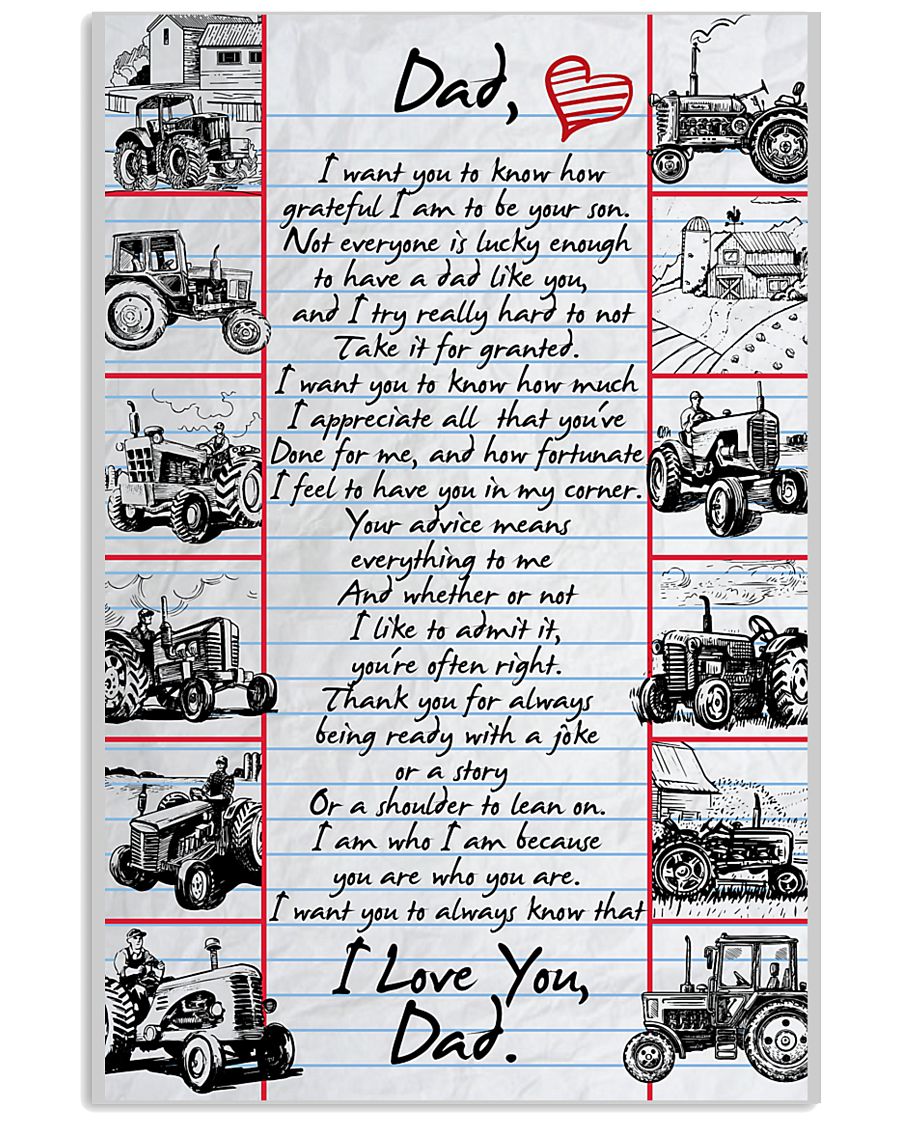 Dad,
I want you to know how
grateful I am to be your son.
Not everyone is lucky enough
to have a dad like you,
and I try really hard to not
Take it for granted.
I want you to know how much
I appreciate all that you've
Done for me, and how fortunate
I feel to have you in my corner.
Your advice means
everything to me
And whether or not
I like to admit it,
you're often right.
Thank you for always
being ready with a joke
or a story
Or a shoulder to lean on.
I am who I am because
you are who you are.
I want you to always know that
I Love You,
Dad.